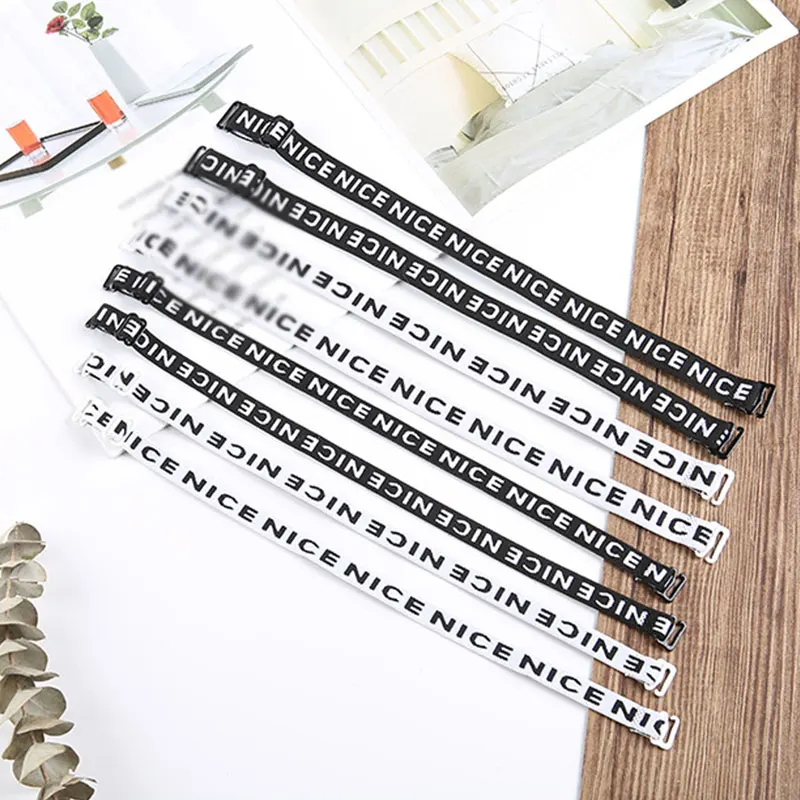 NICE NICE NICE NICE NICE NICE NICE NICE
NICE NICE NICE NICE NICE NICE NICE
NICE NICE NICE NICE NICE NICE
NICE NICE NICE NICE NICE NICE NICE
NICE NICE NICE NICE NICE NICE NICE NICE
NICE NICE NICE NICE NICE NICE NICE
NICE NICE NICE NICE NICE NICE NICE
NICE NICE NICE NICE NICE NICE NICE